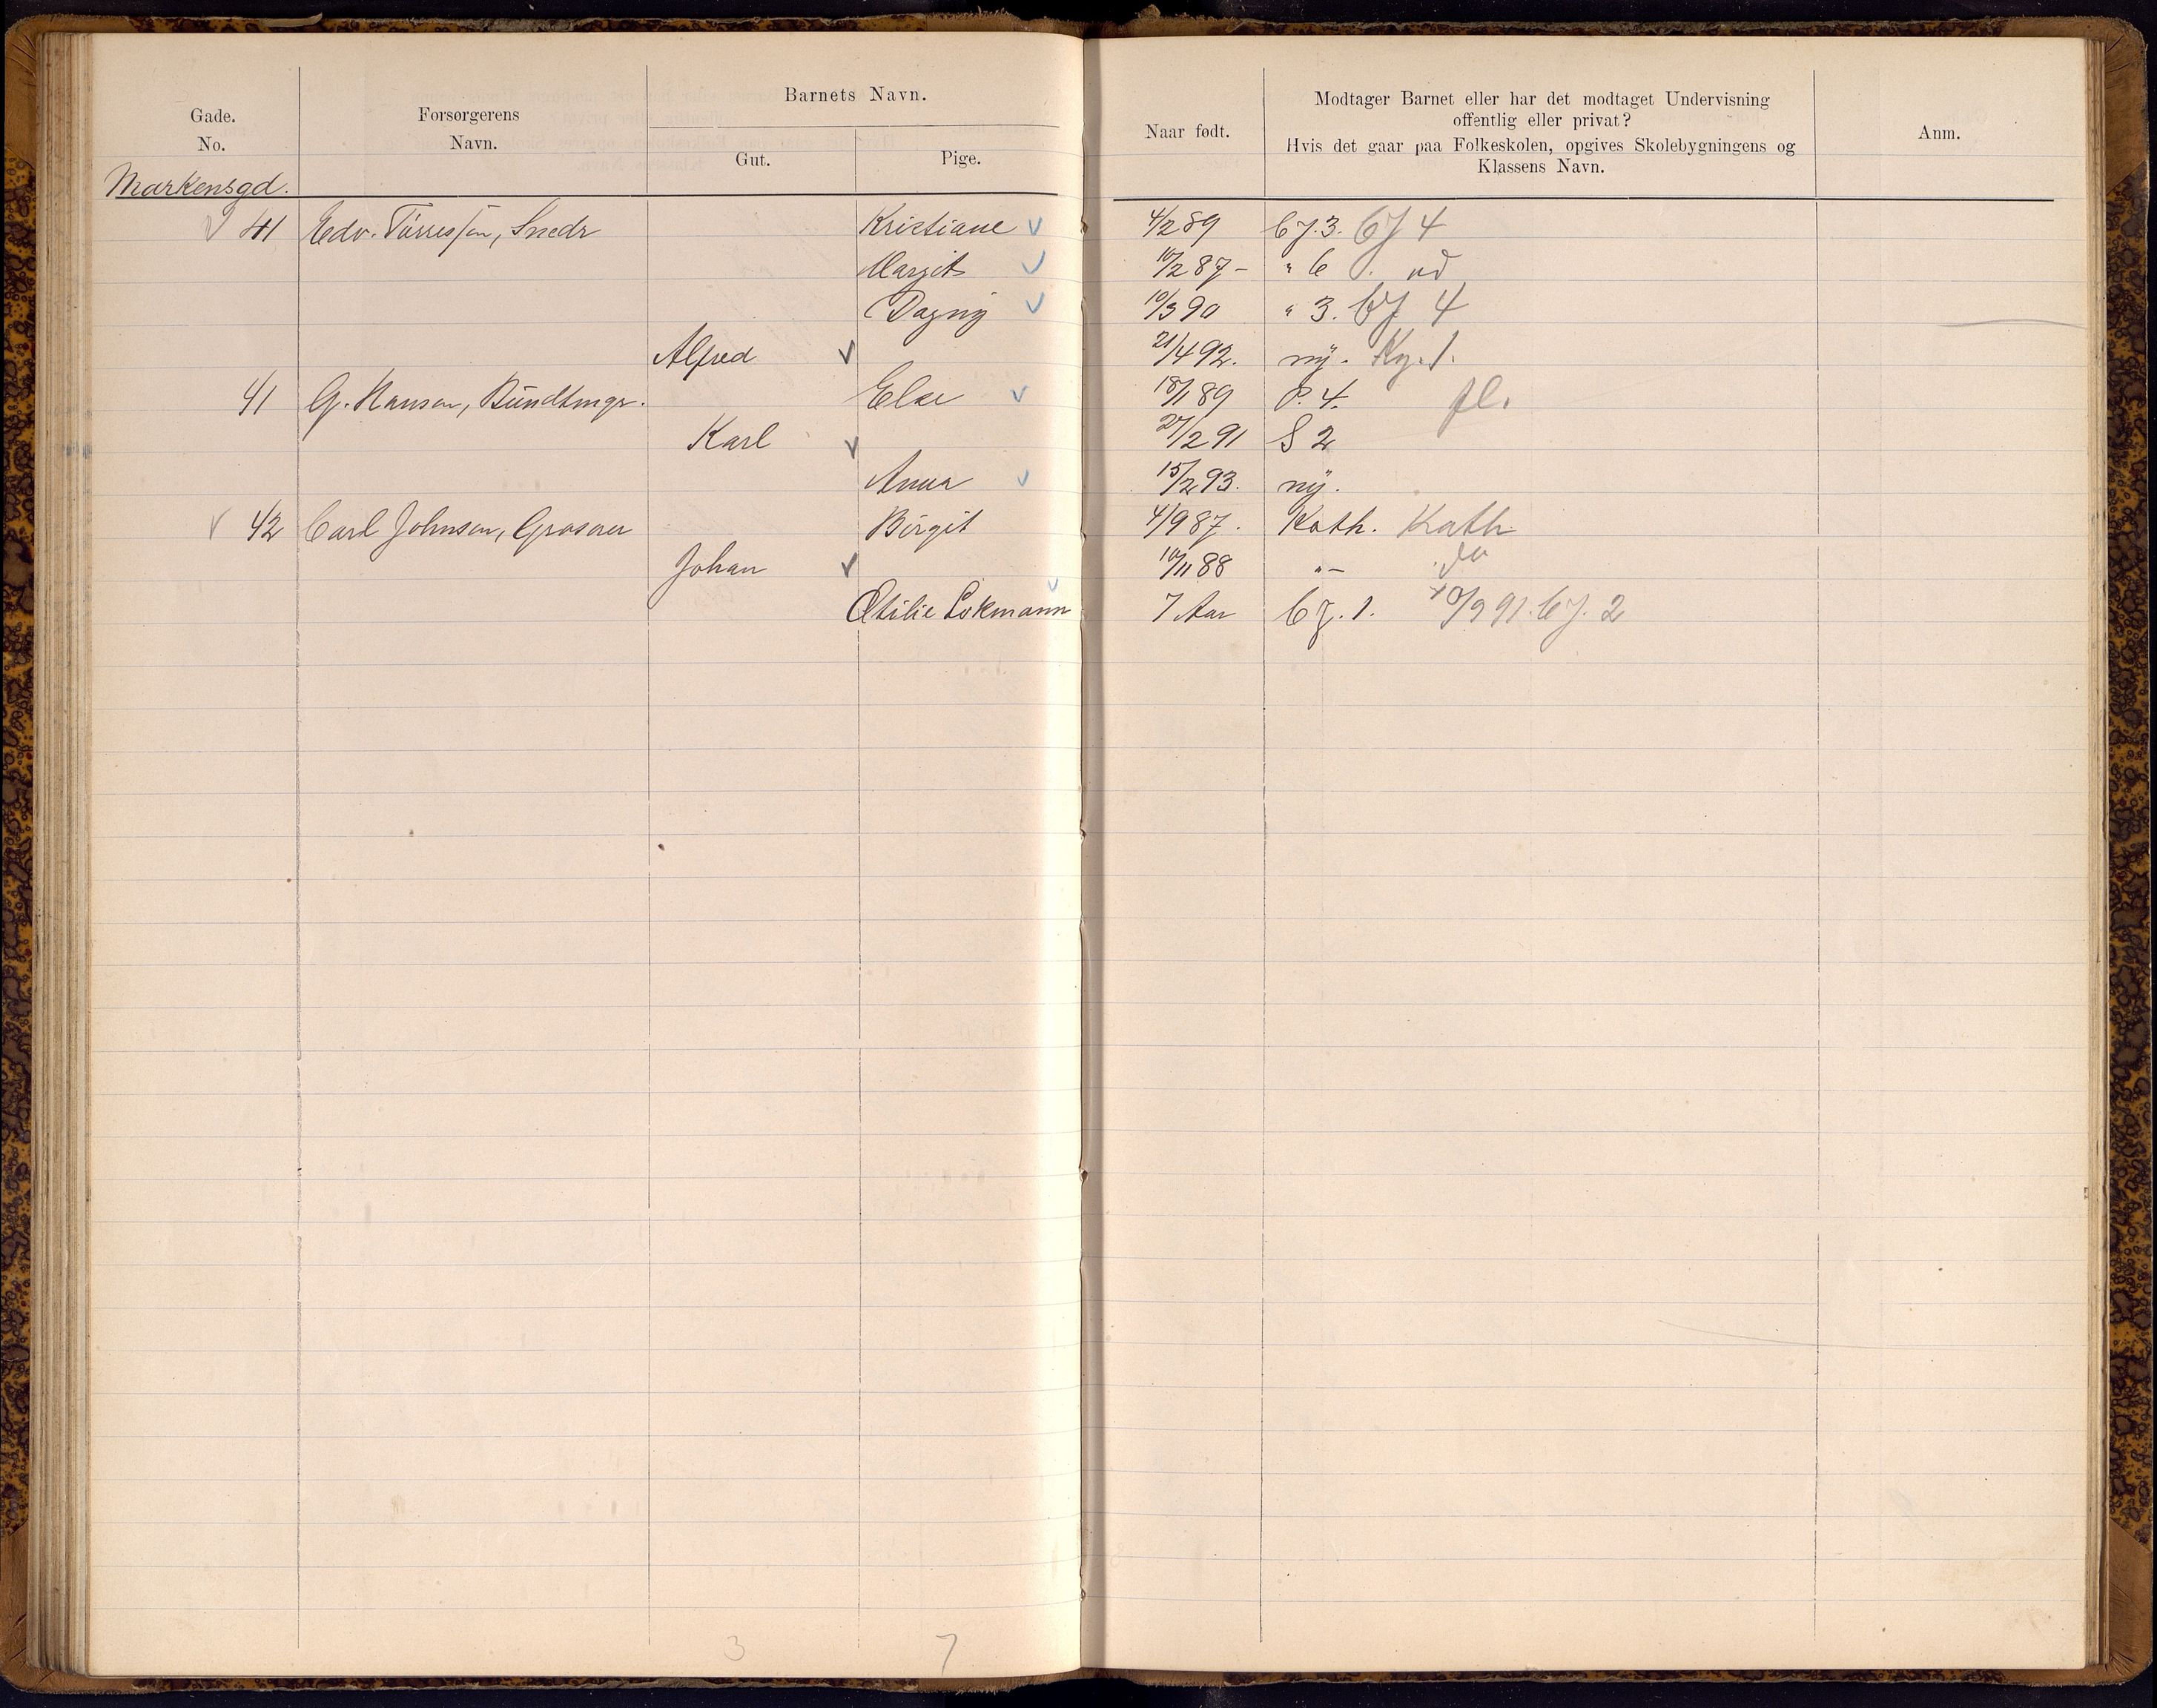 Gade.
No.
Forsørgerens
Navn.
Barnets Navn.
Gut.
Pige.
Naar født.
Modtager Barnet eller har det modtaget Undervisning
offentlig eller privat?
Hvis det gaar paa Folkeskolen, opgives Skolebygningens og
Klassens Navn.
Anm.
Markensgd.
41 Edv. Tørresen, Snedr Kristiane 4/2 89 3. 4
Margit 10/2 87 -
Dagny 10/3 90 " 3. 4
Alfred 21/4 92. ny. Kg. 1.
41 G. Hansen, Bundtmgr. Else 18/1 89 P. 4. fl.
Karl 27/2 91 S 2
Anna 15/2 93. ny.
42 Carl Johnsen, Grosserer Birgit 4/9 87. Kath. Kath
Johan 10/11 88 " - do
Otilie Lokmann 7 Aar 1. 10/9 91. 2
3 7